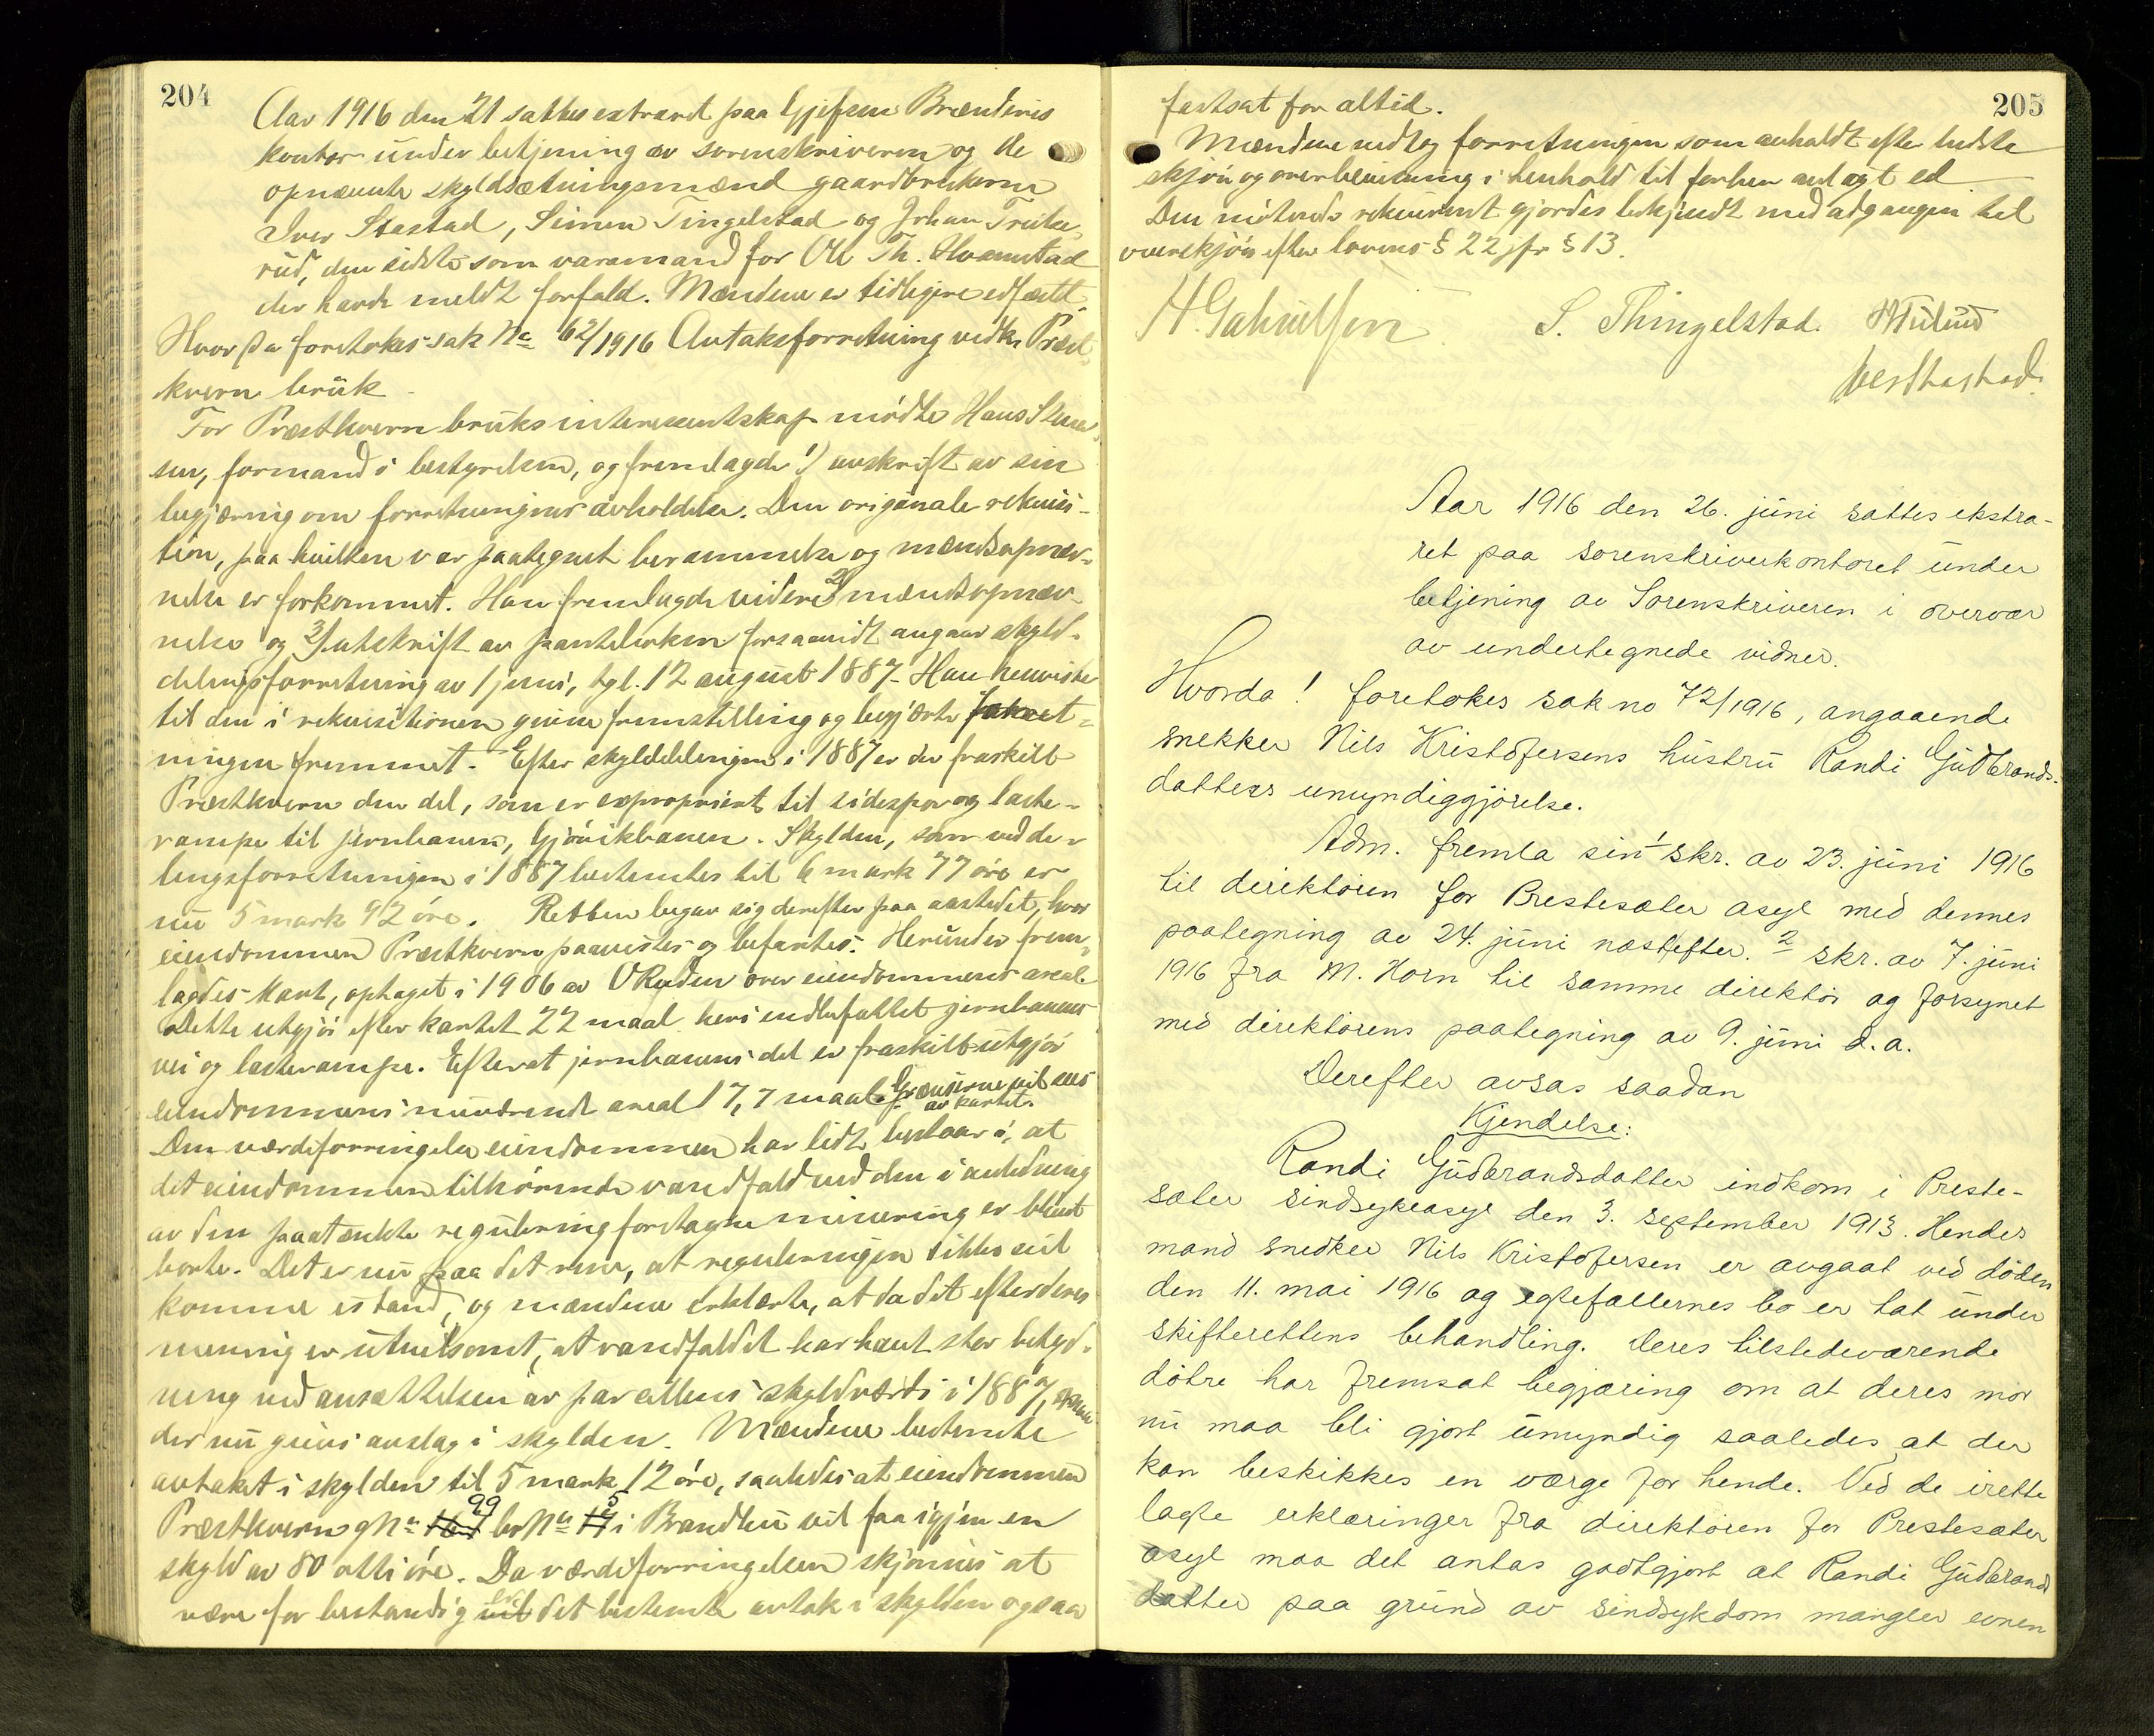 204
Aar 1916 den 21 sattes extraret paa Gjefsen Brænderis
kontor under betjening av sorenskriveren og de
opnævnte skyldsætningsmænd gaardbrukerne
Iver Stastad, Simen Tingelstad og Johan Trulse-
rud, den sidste som varamand for Ole Th. Hvamstad
der havde meldt forfald. Mændene er tidligere edfæstet.
Hvorda foretokes sak No 62/1916 Avtaksforretning vedk. Præst-
kvern bruk.
For Præstkvern bruks interessentskap mødte Hans Steen-
sen, formand i bestyrelsen, og fremlagde 1) avskrift av sin
begjæring om forretningens avholdelse. Den originale rekvisi-
tion, paa hvilken var paategnet berammelse og mændsopnæv-
nelse er forkommet. Han fremlagde videre 2) mændsopnæv-
nelse og 3) utskrift av panteboken forsaavidt angaar skyld-
delingsforretning av 1 juni, tgl. 12 august 1887. Han henviste
til den i rekvisitionen givne fremstilling og begjærte forret-
ningen fremmet. Efter skylddelingen i 1887 er der fraskilt
Præstkvern den del, som er expropriert til sidespor og laste-
rampe til jernbanen, Gjøvikbanen. Skylden, som ved de-
lingsforretningen i 1887 bestemtes til 6 mark 77 øre er
nu 5 mark 92 øre. Retten begav sig derefter paa aastedet, hvor
eiendommen Præstkvern paavistes og befartes. Herunder frem-
lagdes kart, optaget i 1906 av O Ruden over eiendommens areal.
Dette utgjør efter kartet 22 maal heri indbefattet jernbanens
vei og lasterampe. Efterat jernbanens del er fraskilt utgjør
eiendommens nuværende areal 17,7 maal. Grænserne vil sees
av kartet.
Den værdiforringelse eiendommen har lidt bestaar i, at
det eiendommen tilhørende vandfald ved den i anledning
av den paatænkte regulering foretagne minering er blit
borte. Det er nu paa det rene, at reguleringen ikke vil
komme istand, og mændene erklærte, at da det efter deres
mening er utvilsomt, at vandfaldet har havt stor betyd-
ning ved ansættelsen av parcellens skyldværdi i 1887,
der nu gives avslag i skylden. Mændene bestemte
avtaket i skylden til 5 mark 12 øre, saaledes at eiendommen
Præstkvern gNo 99 brNo 5 i Brandbu vil faa igjen en
skyld av 80 otti øre. Da værdiforringelsen skjønnes at
være for bestandig blir det bestemte avtak i skylden ogsaa
205
fastsat for altid.
Mændene vedtog forretningen som avholdt efter bedste
skjøn og overbevisning i henhold til forhen avlagt ed
Den møtende rekvirent gjordes bekjendt med adgangen til
overskjøn efter lovens § 22 jfr § 13.
H. Gabrielsen S. Thingelstad.
Iver Stastad.
Aar 1916 den 26. juni sattes ekstra-
ret paa sorenskriverkontoret under
betjening av Sorenskriveren i overvær
av undertegnede vidner.
Hvorda! foretokes sak no 72/1916, angaaende
snekker Nils Kristofersens hustru Randi Gudbrands-
datters umyndiggjørelse.
Adm. fremla sin 1 skr. av 23. juni 1916
til direktøren for Prestesæter asyl med dennes
paategning av 24. juni næstefter. 2 skr. av 7. juni
1916 fra M. Horn til samme direktør og forsynet
med direktørens paategning av 9. juni d.a.
Derefter avsas saadan
Kjendelse:
Randi Gudbrandsdatter indkom i Preste-
sæter sindsykeasyl den 3. september 1913. Hendes
mand snedker Nils Kristofersen er avgaat ved døden
den 11. mai 1916 og egtefællernes bo er tat under
skifterettens behandling. Deres tilstedeværende
døtre har fremsat begjæring om at deres mor
nu maa bli gjort umyndig saaledes at der
kan beskikkes en værge for hende. Ved de irette
lagte erklæringer fra direktøren for Prestesæter
asyl maa det antas godtgjort at Randi Gudbrands
datter paa grund av sindsykdom mangler evnen